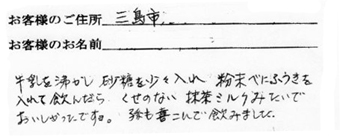 お客様のご住所 三島市
お客様のお名前
牛乳を沸かし 砂糖を少々入れ 粉末べにふうきを
入れて飲んだら くせのない 抹茶ミルクみたいで
おいしかったです。 孫も喜こんで飲みました。